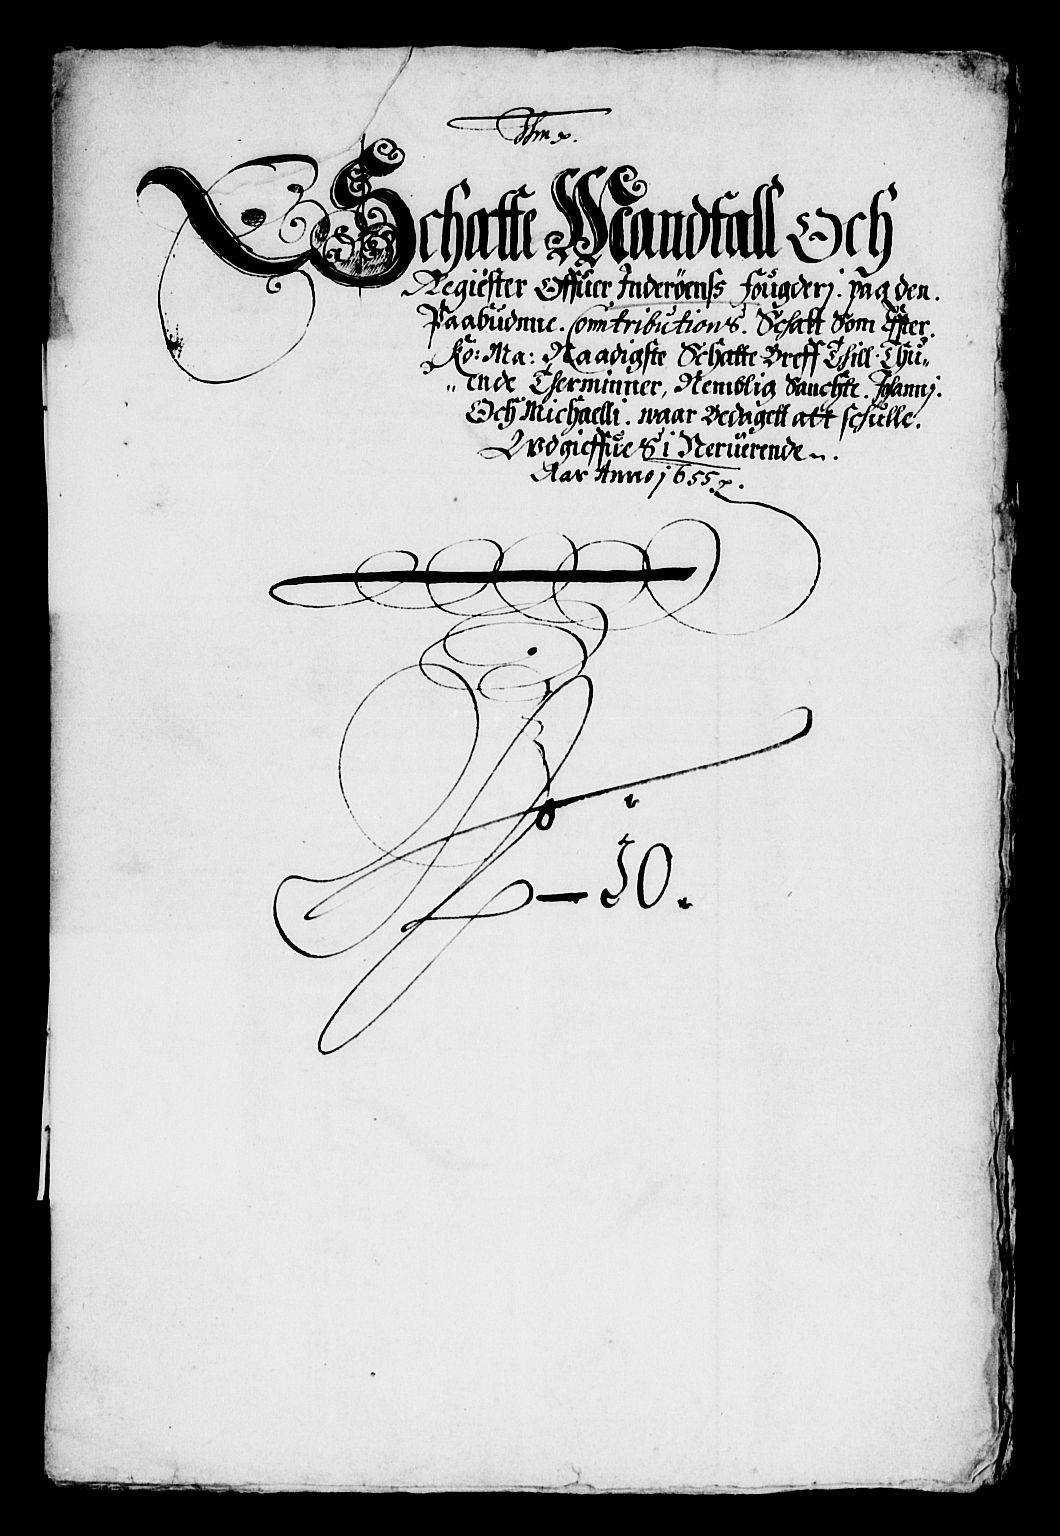 Schatte Mandtall Och
Regiester Offuer Inderöenss fougderj. paa den.
Paabudnne. Conntributions. Schatt Som Effter.
Ko: Ma: Naadigste Schatte Breff Thill Thu„
„ende Therminner, Nemblig Sanchte. Johannj.
Och Michaelli. waar Bedagett att schulle.
Vdgieffues i Neruerende
Aar Anno 1655
50.